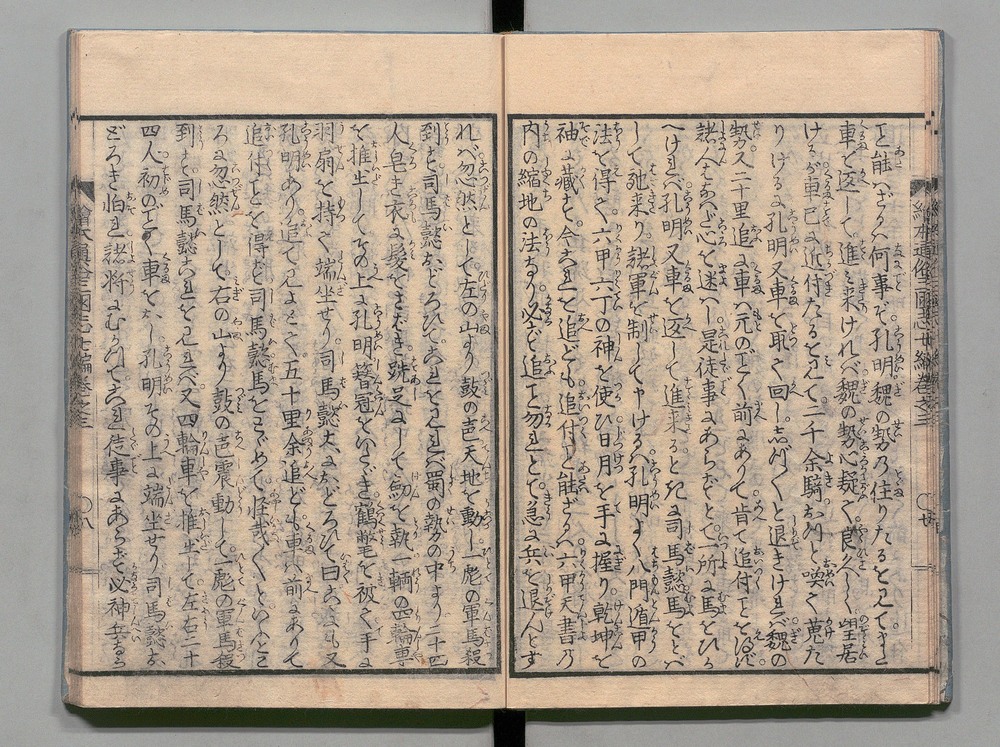 こと能はざるハ何事ぞ孔明魏の勢乃住りたるを見てまた
車を返して進ミ来けれバ魏の勢心疑く良久しく望居
けるが車已に近付たるを見て二千余騎おめ〳〵と喚て蒐た
りけるに孔明又車を取て回ししづ〳〵と退きけれバ魏の
勢又二十里追に車ハ元のごとく前にありて肯て追付ことを得ず
諸人みな心を迷ハし是徒事にあらずとて一所に馬をひか
へけれバ孔明又車を返して進来るとき司馬懿馬をとバ
して馳来り諸軍を制して申けるハ孔明よく八門遁甲の
法を得て六甲六丁の神を使ひ日月を手に握り乾坤を
袖に蔵す今これを追ども追付こと能ざるハ六甲天書乃
内の縮地の法なり必ず追こと勿れとて急に兵を退んとす
れバ忽然として左の山より鼓の声天地を動し一彪の軍馬殺
到す司馬懿おどろひてこれを見れバ蜀の勢の中より二十四
人皂き衣に髪をさばき跣足にして剣を執一輌の四輪車
を推出してその上に孔明簪冠をいたゞき鶴氅を被て手に
羽扇を持て端坐せり司馬懿大におどろひて曰こゝにも又
孔明あり追て見よとて五十里余追ども車ハ前にありて
追付ことを得ず司馬懿馬をとゞめて怪哉〳〵といふとこ
ろに忽然として右の山より鼓の声震動して一彪の軍馬殺
到す司馬懿これを見れバ又四輪車を推出して左右二十
四人初のごとく車をおし孔明その上に端坐せり司馬懿お
どろき怕れ諸将にむかつてこれ徒事にあらず必神兵なら